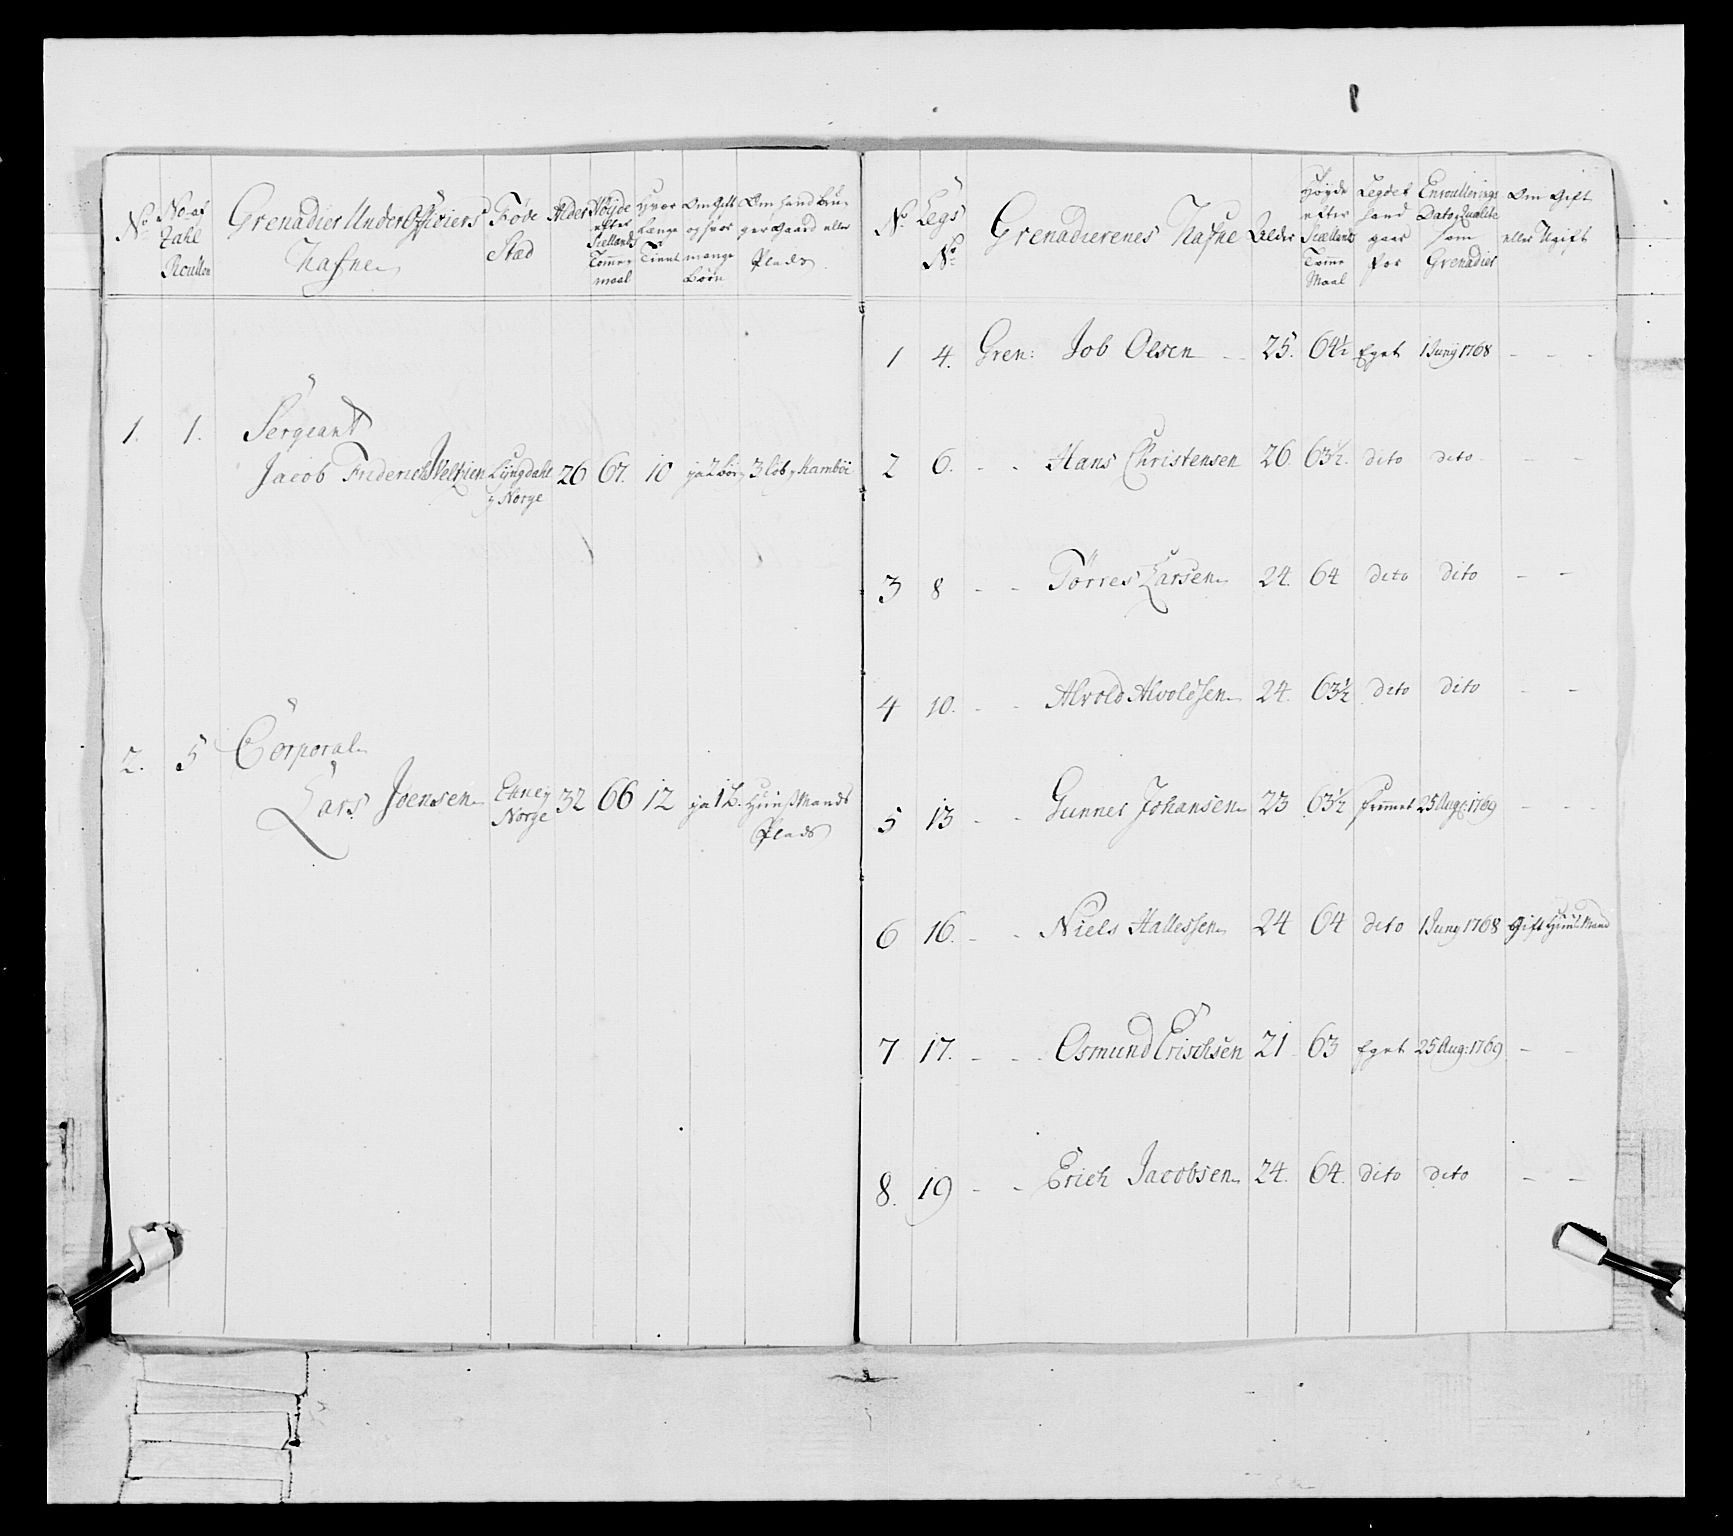 No
No af Zahl Roullen
Grenadier Under Officiers Nafne
Føde Stæd
Alder
Høyde efter Siællands Tomme maal
Hvor længe Tient
Om Gift og hvor mange Børn
Om hand bruger Gaard eller Plads
1. 1. Sergeant
Jacob Friderich Weltzien Lÿngdahl 26 67. 10 ja 2 Bør 3 løb
y Norge
2. 5 Corporal
Lars Joensen 32 66 12 ja 1 b. Huusmands
Norge Plads
No
Legs No
Grenadierenes Nafne
Alder
Høyde efter Siællands Tomme Maal
Legdet hand gaar for
Enroullerings Dato Qualite som Grenadier
Om Gift eller Ugift
1 4. Gren: Job Olsen - - 25. 64½ Eget 1 Junÿ 1768 - - -
2 6. - - Hans Christensen 26. 63½. dito dito - - -
3 8 - - Tørres Larsen 24. 64 dito dito - -
4 10. - - Alvold Alvoldsen 24. 63½ dito dito - -
5 13 - - Gunner Johansen 23 63½ fremmet 25 Aug: 1769 - - -
6 16. - - Niels Hallessen 24 64 dito 1 Juny 1768 Gift Huusmand
7 17. - - Osmund Erichsen 21 63 Eget 25 Aug: 1769 - -
8. 19 - - Erich Jacobsen 24. 64. dito dito - -